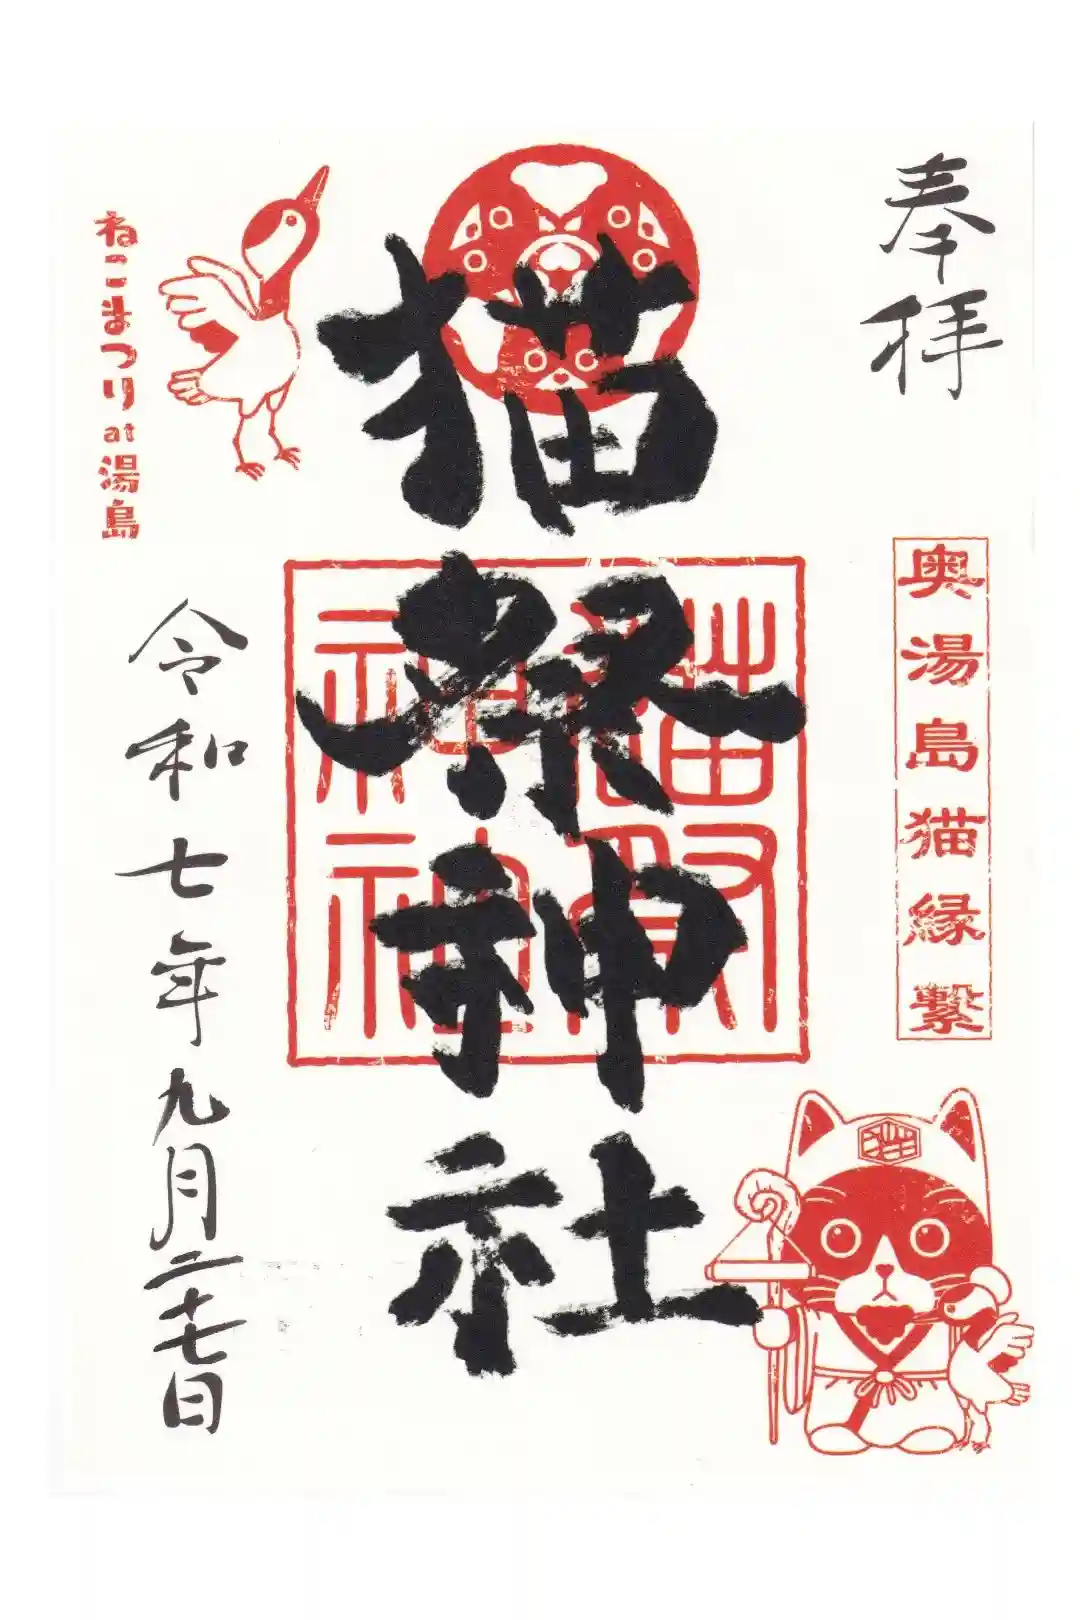 奉拝
奥湯島猫縁繋
猫祭神社
ねこまつりat湯島
令和七年九月二十七日